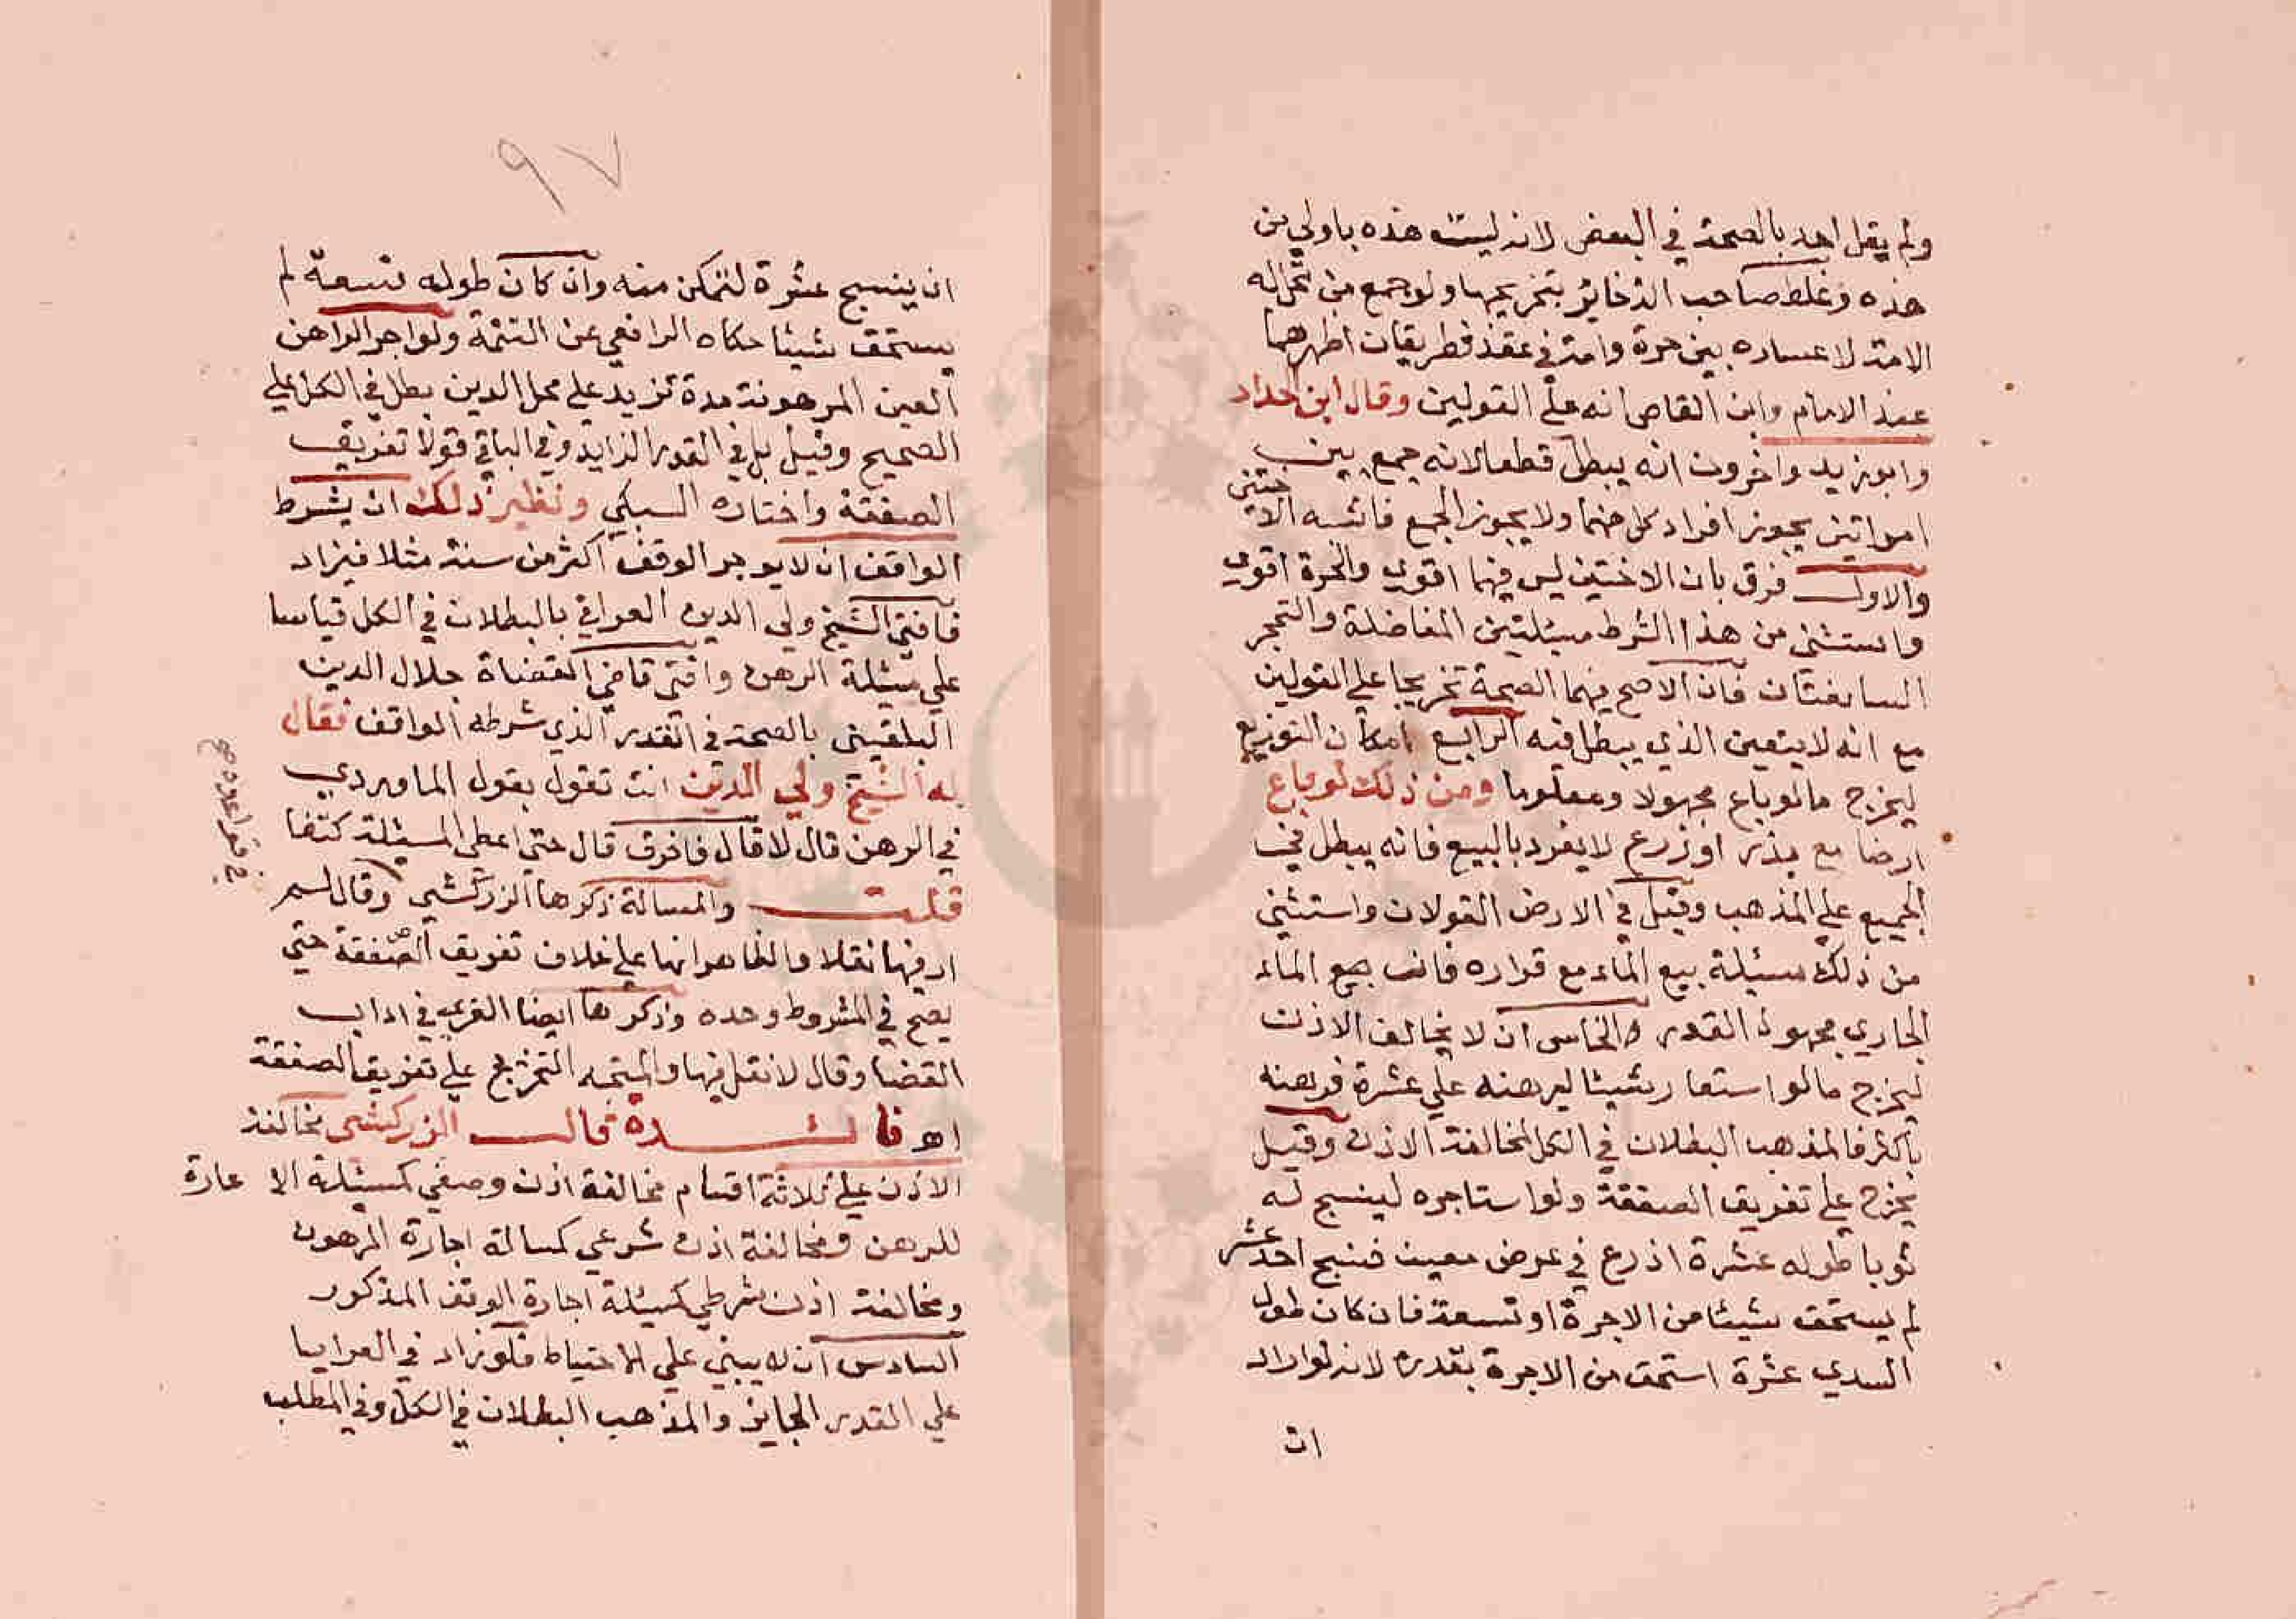 ولم يقل احد بالصحة في البعض لانه ليست هذه باولي من
هذه وغلط صاحب الذخائر بتخريجها ولو جمع من تحل له
الامة لاعساره بين حرة وامة في عقد فطريقان اظهرهما
عند الامام وابن القاص انه علي القولين وقال ابن الحداد
وابو زيد واخرون انه يبطل قطعا لانه جمع بين
امراتين يجوز افراد كل منهما ولا يجوز الجمع فاشبه الاختين
والاول فرق بان الاختين ليس فيهما اقوي والحرة اقوي
واستثني من هذا الشرط مسئلتين المفاضلة والتحجر
السابقتان فان الاصح فيهما الصحة تخريجا علي القولين
مع انه لا يتعين الذي يبطل فيه الرابع امكان التوزيع
ليخرج ما لو باع مجهولا ومعلوما ومن ذلك لو باع
ارضا مع بذر او زرع لا يفرد بالبيع فانه يبطل في
الجميع علي المذهب وقيل في الارض القولان واستثني
من ذلك مسئلة بيع الماء مع قراره فانه بيع الماء
الجاري مجهول القدر والخامس ان لا يخالف الاذن
ليخرج ما لو استعار شيئا ليرهنه علي عشرة فرهنه
باكثر فالمذهب البطلان في الكل لمخالفة الاذن وقيل
يخرج علي تفريق الصفقة ولو استاجره لينسج له
ثوبا طوله عشرة اذرع في عرض معين فنسج احد عشر
لم يستحق شيئا من الاجرة او تسعة فان كان طول
السدي عشرة استحق من الاجرة بقدره لانه لو اراد
ان
٩٧
ان ينسج عشرة لتمكن منه وان كان طوله تسعة لم
يستحق شيئا حكاه الرافعي عن التتمة ولو اجر الراهن
العين المرهونة مدة تزيد علي محل الدين بطل في الكل علي
الصحيح وقيل بل في القدر الزايد وفي الباقي قولا تفريق
الصفقة واختاره السبكي ونظير ذلك ان يشرط
الواقف ان لا يوجر الوقف اكثر من سنة مثلا فيزاد
فافتي الشيخ ولي الدين العراقي بالبطلان في الكل قياسا
علي مسئلة الرهن وافتي قاضي القضاة جلال الدين
البلقيني بالصحة في القدر الذي شرطه الواقف فقال
له الشيخ ولي الدين انت تقول بقول الماوردي
في الرهن قال لا قال فافرق قال حتي اعطي المسئلة كتفا
قلت والمسالة ذكرها الزركشي وقال لم
ار فيها نقلا والظاهر انها علي خلاف تفريق الصفقة حتي
يصح في المشروط وحده وذكرها ايضا الغزي في اداب
القضا وقال لا نقل فيها والمتجه التخريج علي تفريق الصفقة
اهـ فائدة قال الزركشي مخالفة
الاذن علي ثلاثة اقسام مخالفة اذن وضعي كمسئلة الاعارة
للرهن ومخالفة اذن شرعي كمسالة اجارة المرهون
ومخالفة اذن شرطي كمسئلة اجارة الوقف المذكور
السادس ان لا يبني علي الاحتياط فلو زاد في العرايا
علي القدر الجايز والمذهب البطلان في الكل وفي المطلب